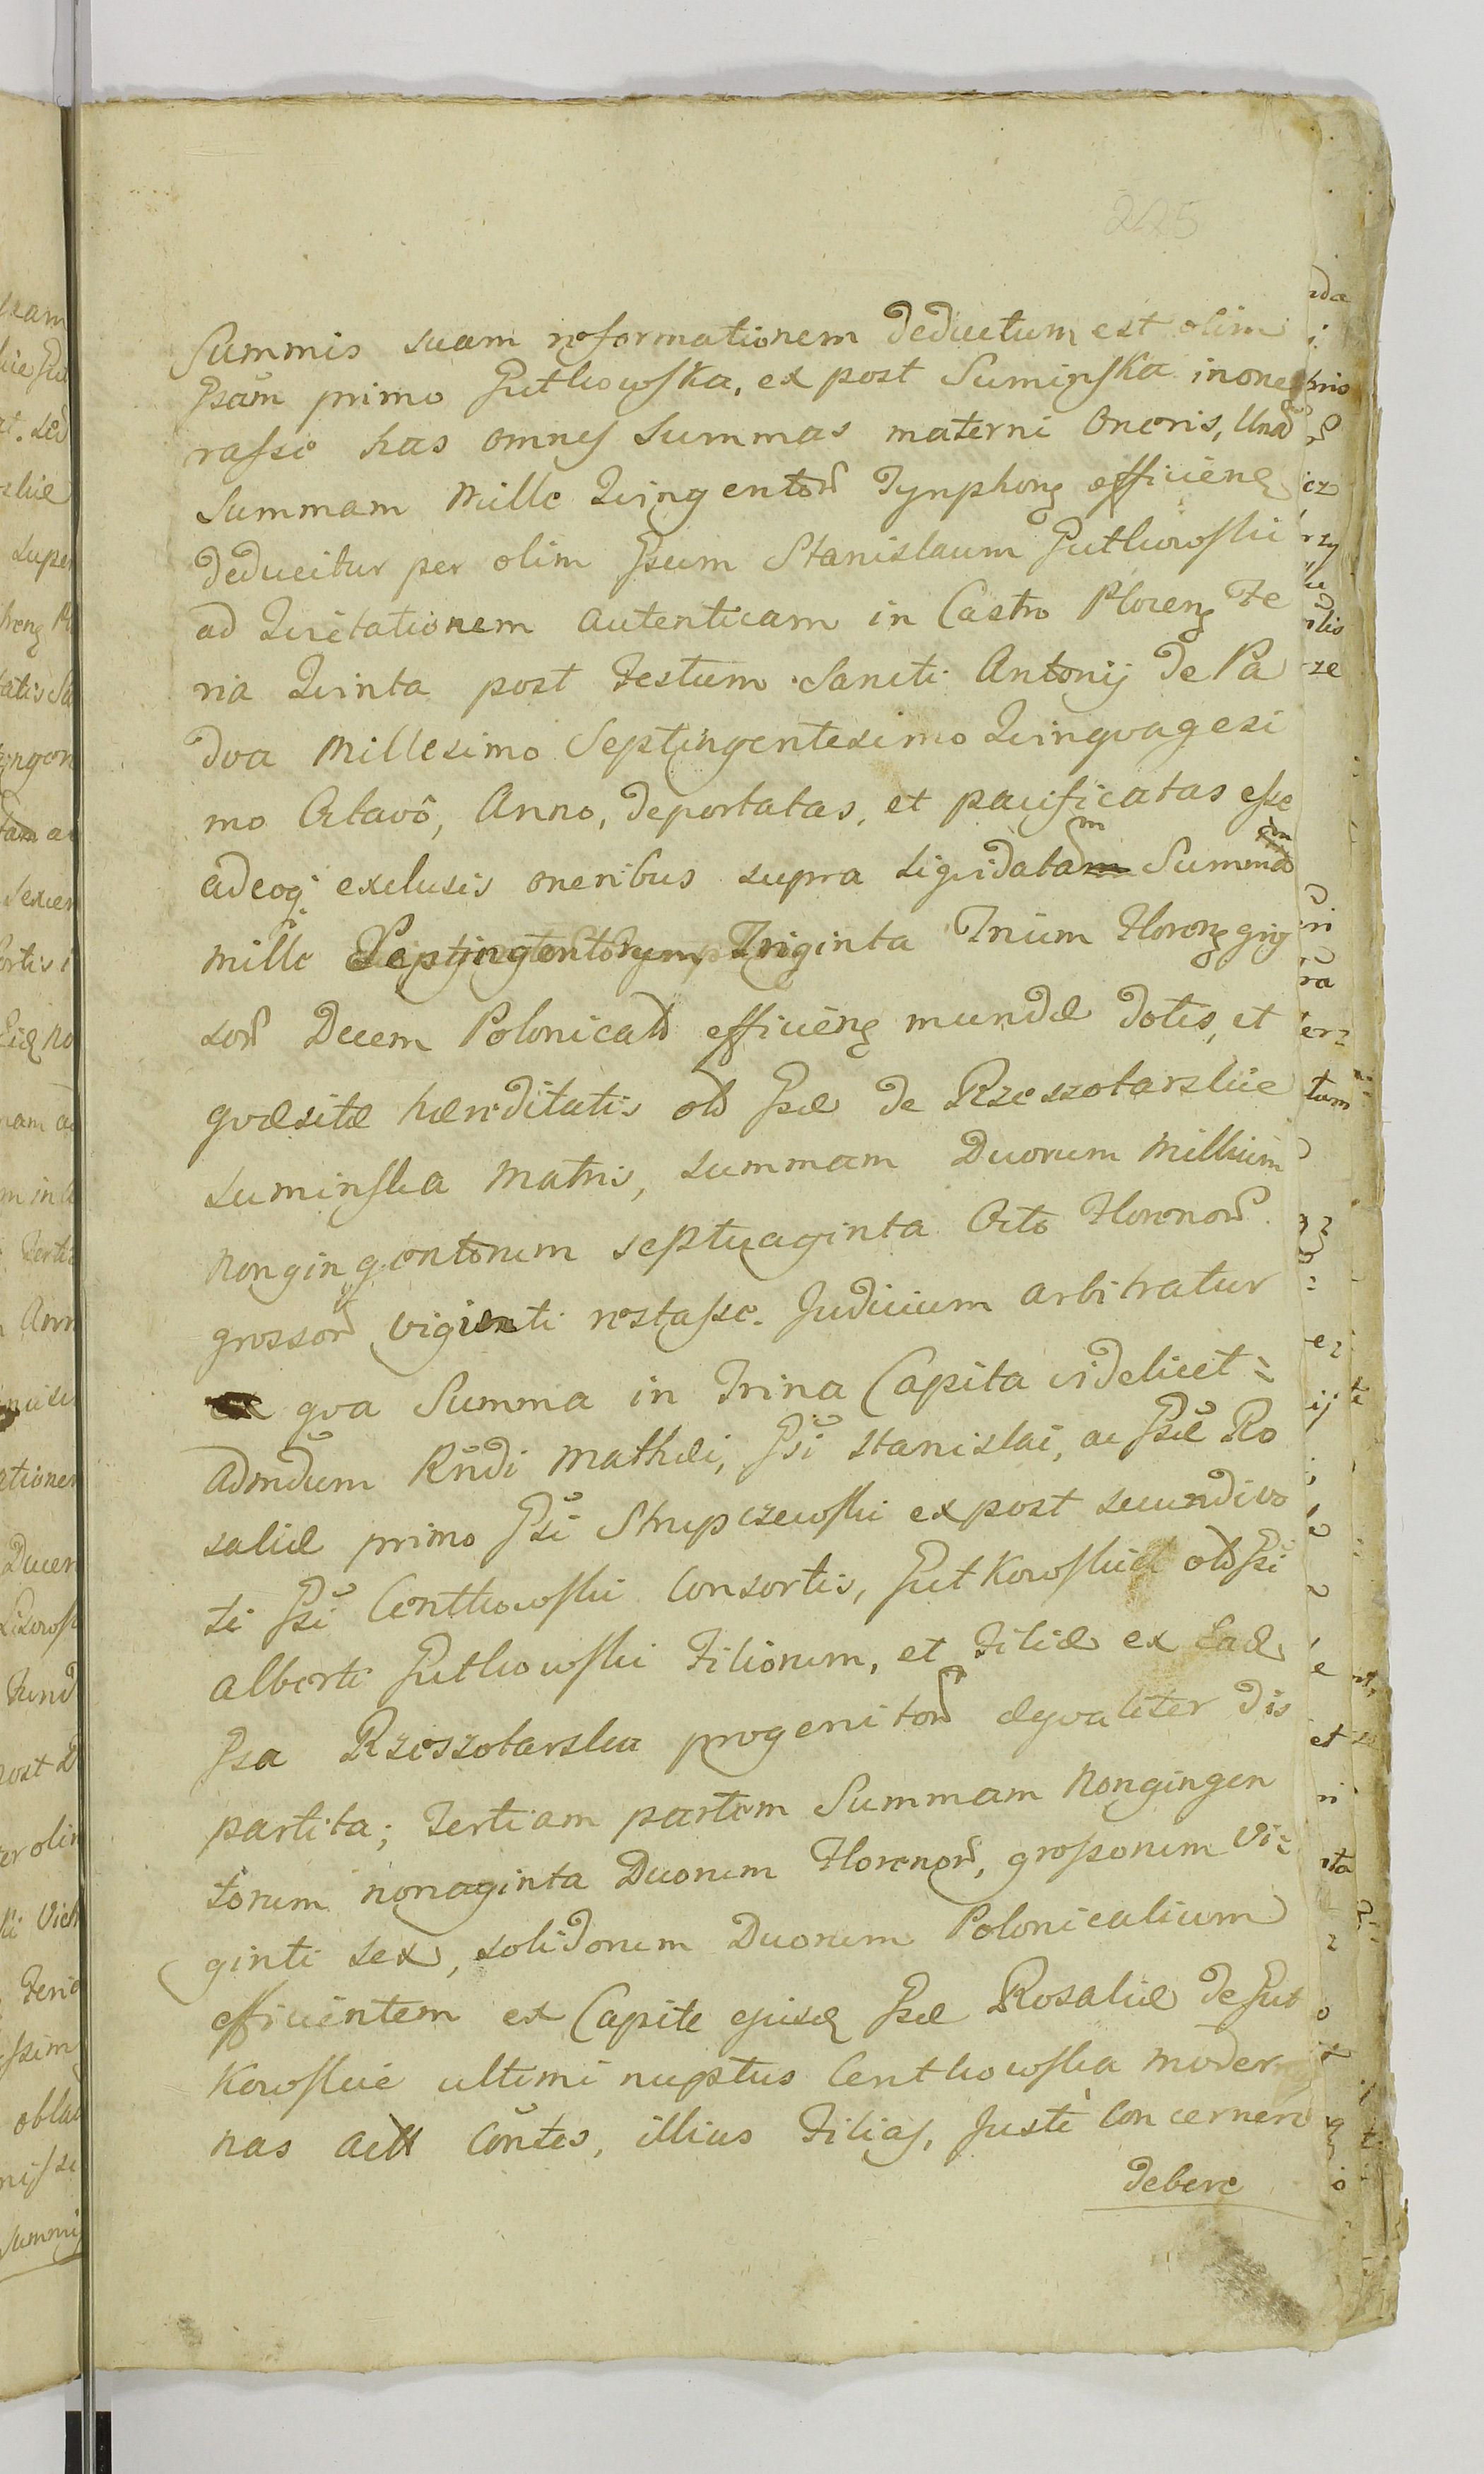 225
Summis suam reformationem deductum est olim
Gsam primo Gutkowska, ex post Suminska inone
rasse has omnes Summas materni Oneris, Unā
Summam Mille Qvingentorū Tynphonz efficienz
deducitur per olim Gsum Stanislaum Gutkowski
ad Qvietationem autenticam in Castro Plocenz Fe
ria Qvinta post Festum Sancti Antonij de Pa
dva Millesimo Septingentesimo Qvinqvagesi
mo Octavô, Anno, deportatas, et pacificatas esse
adeoq exclusis oneribus supra liqvidatam Summa
Mille Septingentorum Triginta Trium Florenz
sorū Decem Polonicaliū efficienz mundæ dotis, et
qvæsitæ hæreditatis olī Gsæ de Rzeszotarskie
Suminska Matris, summam Duorum Millium
Nongingentorum septuaginta Octo Florenorū
grossorū viginti restasse. Judicium arbitratur
ex qva Summa in Trina Capita videlicet =
Admdum Rñdi Mathæi, Gsi Stanislai, ac Gsæ Ro
saliæ primo Gsi Strupczewski ex post secundivo
ti Gsi Centkowski Consortis, Gutkowskich olī Gsi
Alberti Gutkowski Filiorum, et Filiæ ex Eadz
Gsa Rzeszotarska progenitorū æqvaliter dis
partita; Tertiam partem Summam Nongingen
torum nonaginta Duorum Florenorū, grossorum Vi=
ginti sex, solidorum Duorum Polonicalium
efficientem ex Capite ejusdz Gsæ Rosaliæ de Gut
kowskie ultimi nuptus Centkowska moder
nas Act Contes, illius Filias, juste concernere
debere